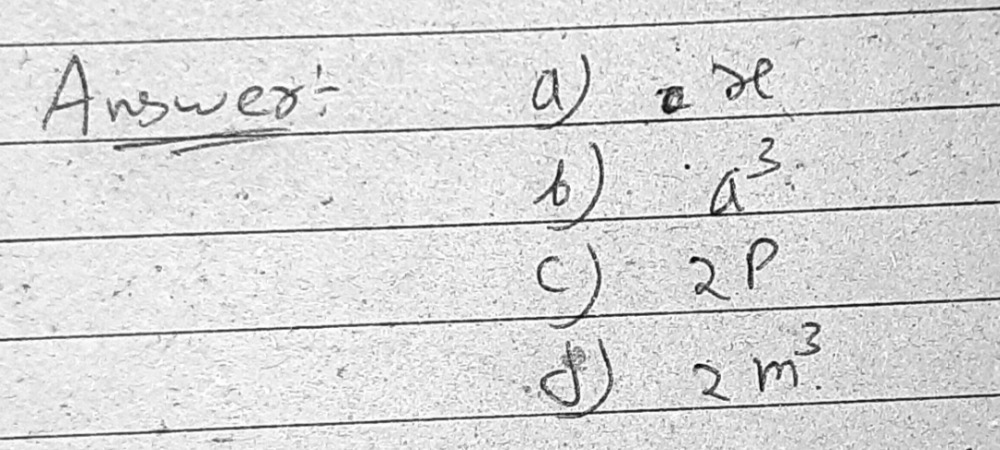 Answer:- a) x
b) a³
c) 2P
d) 2m³